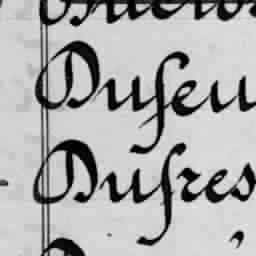 Duſeu
Duſres